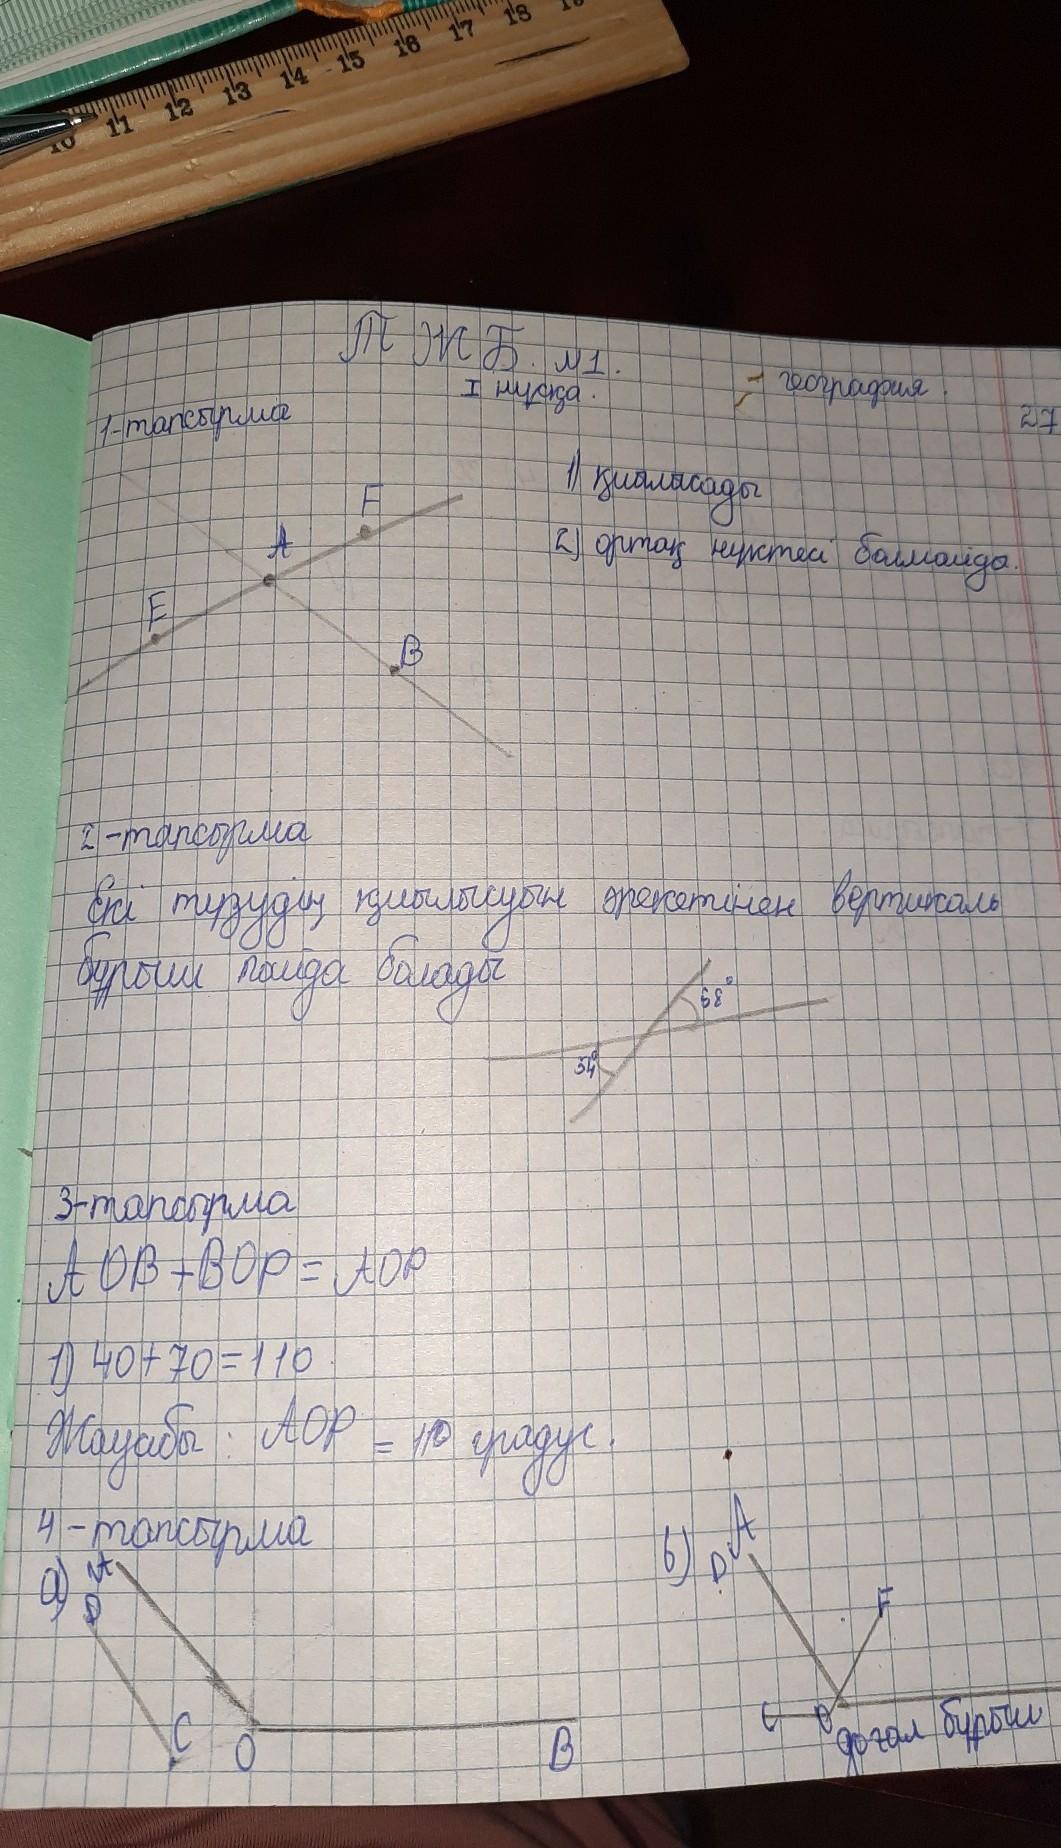 10 11 12 13 14 15 16 17 18 19
ТЖБ. №1.
I нұсқа.
география.
27
1-тапсырма
1) қиылысады
2) ортақ нүктесі болмайды.
F
A
E
B
2-тапсырма
Екі түзудің қиылысуын әрекетінен вертикаль
бұрыш пайда болады
68°
54°
3-тапсырма
AOB+BOP=AOP
1) 40+70=110
Жауабы: AOP = 110 градус.
4-тапсырма
а)
A
D
C
O
B
b)
A
D
F
C
O
доғал бұрыш